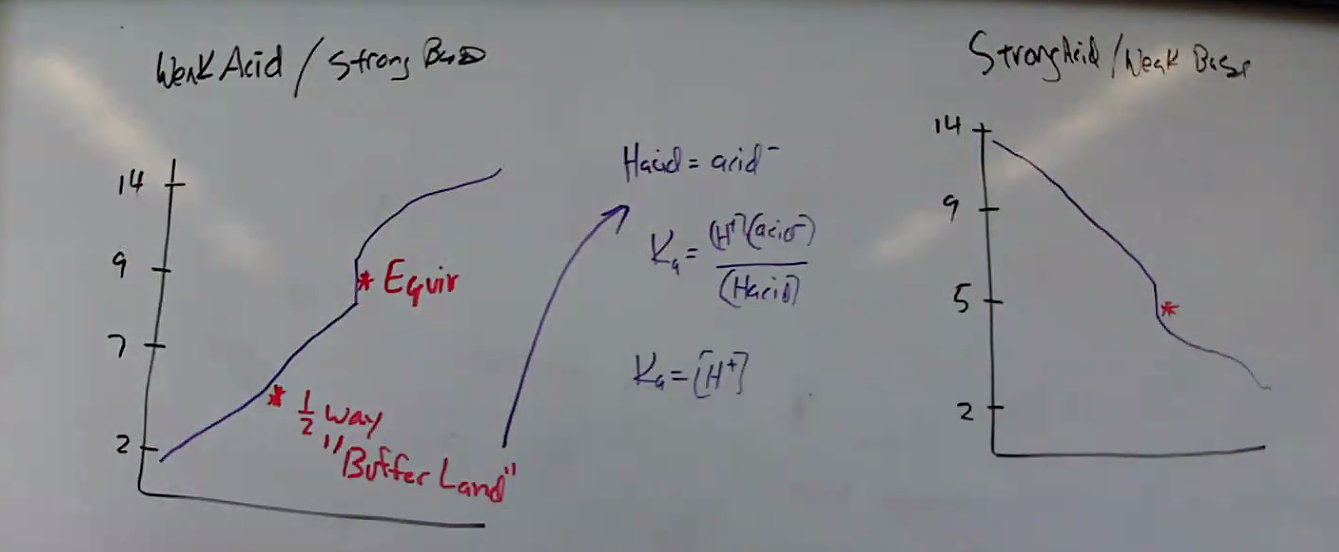 Weak Acid / Strong Base
14
9
7
2
* Equiv
* 1/2 way
"Buffer Land"
Hacid = acid⁻
Ka = (H⁺)(acid⁻)
(Hacid)
Ka = [H⁺]
Strong Acid / Weak Base
14
9
5
2
*